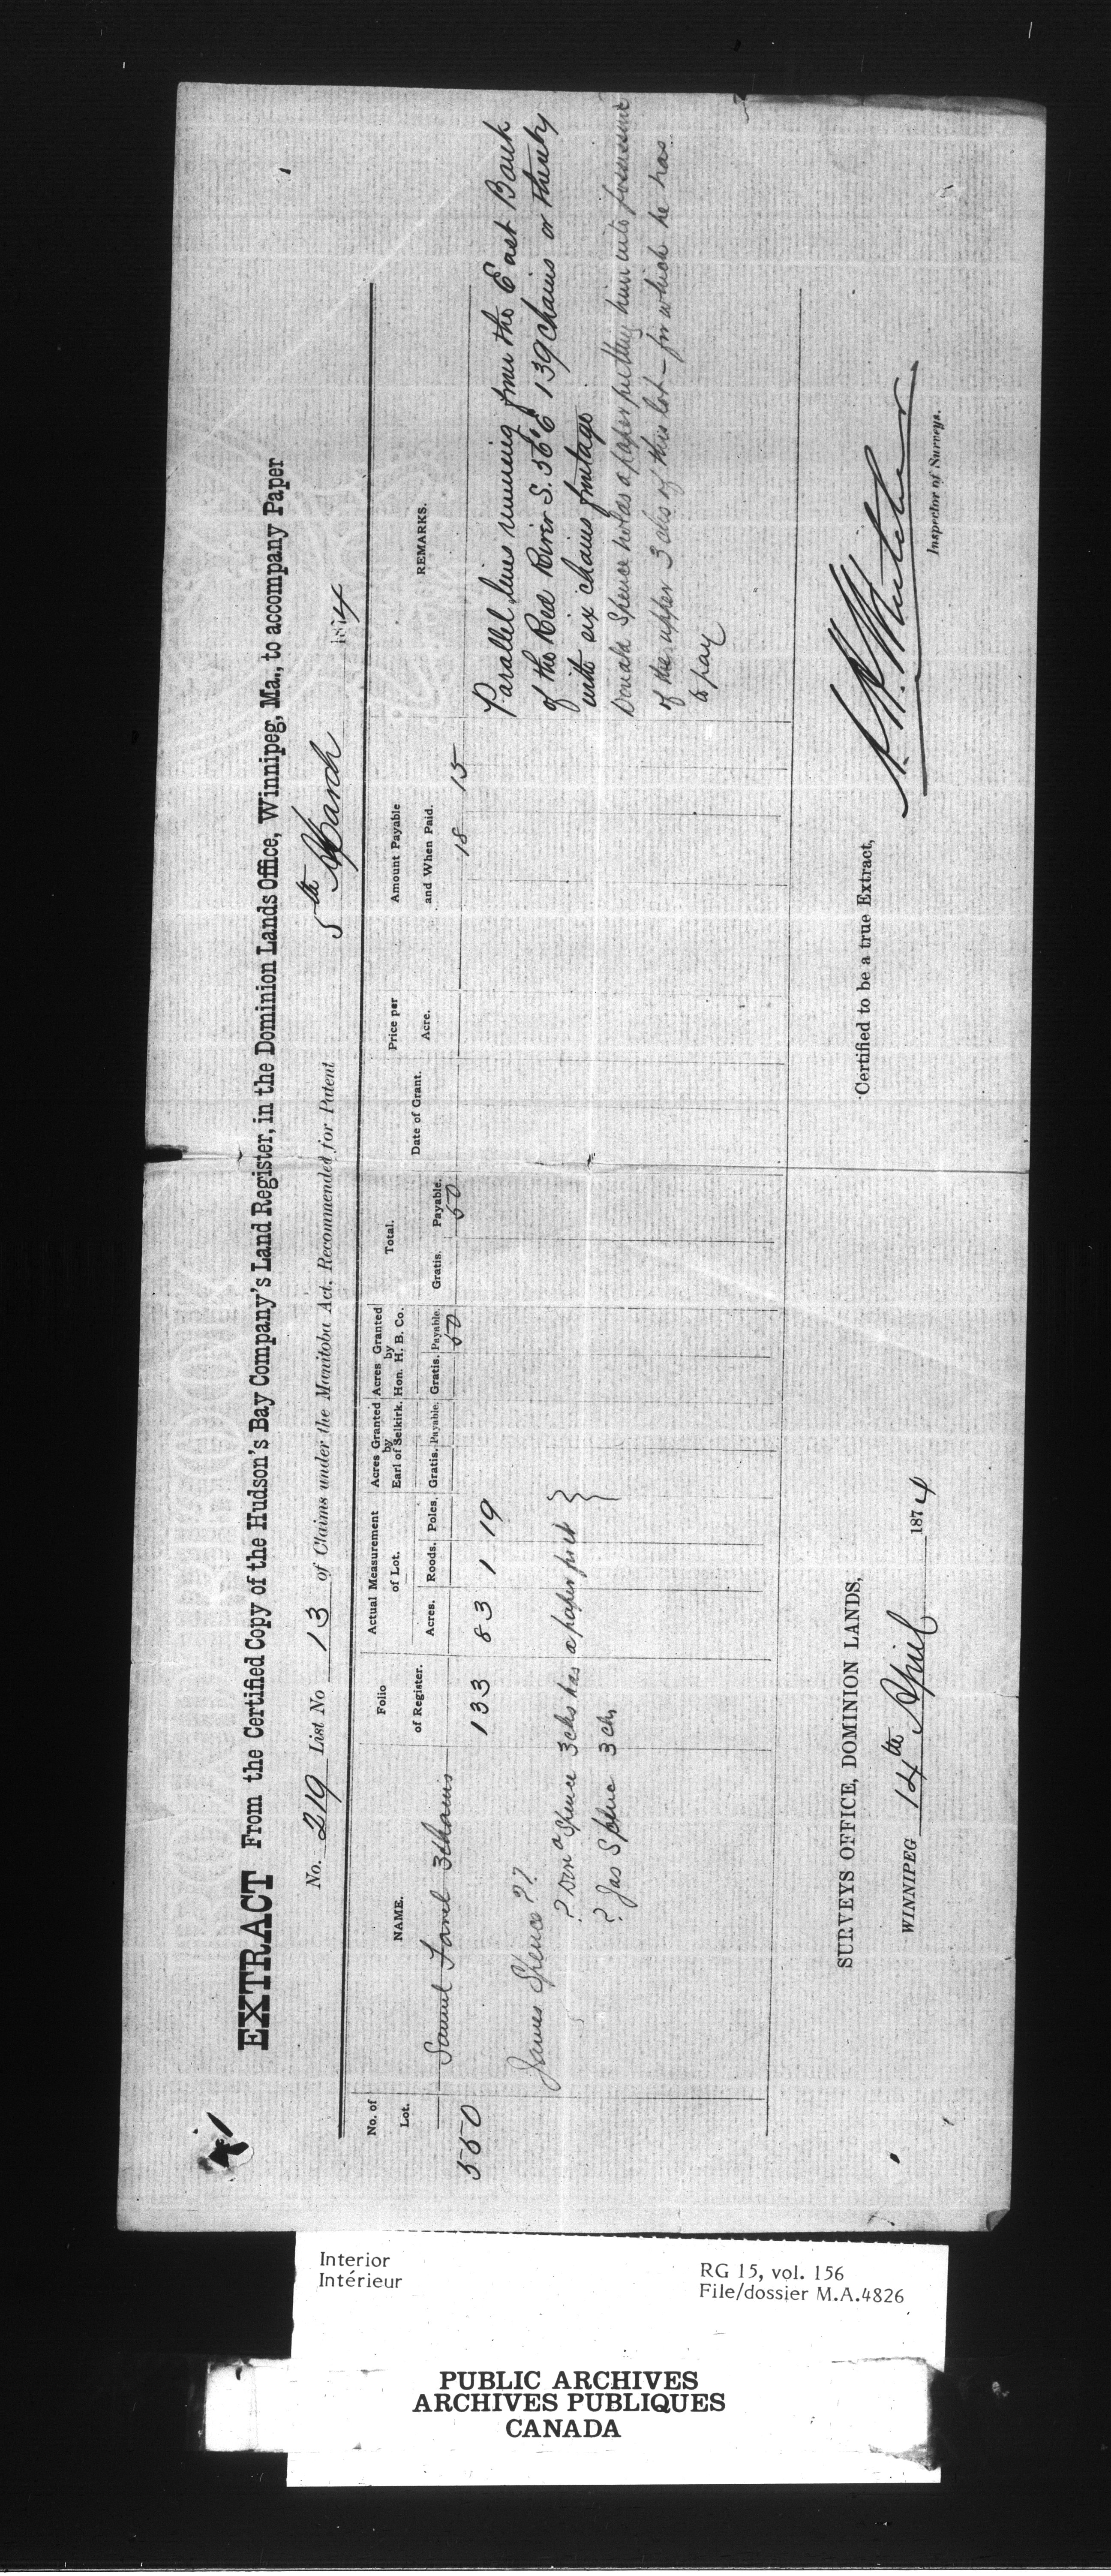 EXTRACT From the Certified Copy of the Hudson's Bay Company's Land Register, in the Dominion Lands Office, Winnipeg, Ma., to accompany Paper
No. 219 List No 13 of Claims under the Manitoba Act, Recommended for Patent 5th March 1874
No. of Lot.
NAME.
Folio of Register.
Actual Measurement of Lot.
Acres. Roods. Poles.
Acres Granted by Earl of Selkirk.
Gratis. Payable.
Acres Granted by Hon. H. B. Co.
Gratis. Payable.
Total.
Gratis. Payable.
Date of Grant.
Price per Acre.
Amount Payable and When Paid.
REMARKS.
Samuel Favel 3 chains
550 133 83 1 19 50 50 18 15
James Spence ??
? Dond Spence 3 chs has a paper for it
? Jas Spence 3 chs
Parallel lines running from the East Bank
of the Red River S. 56° E 139 chains or thereby
with six chains frontage
Donald Spence holds a paper putting him into possession
of the upper 3 chs of this lot – for which he has
to pay
SURVEYS OFFICE, DOMINION LANDS,
WINNIPEG 14th April 1874
Certified to be a true Extract,
Inspector of Surveys.
Interior
Intérieur
RG 15, vol. 156
File/dossier M.A.4826
PUBLIC ARCHIVES
ARCHIVES PUBLIQUES
CANADA